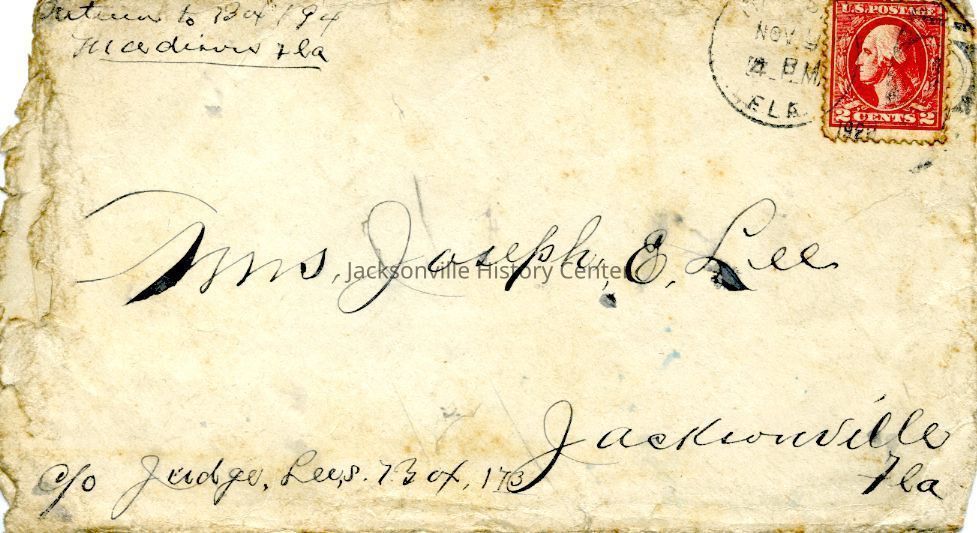 Return to Box 194
Madison Fla
NOV 9
4 PM
FLA
1920
U.S. POSTAGE
2 CENTS 2
Mrs, Joseph, E, Lee
Jacksonville History Center
Jacksonville
Fla
c/o Judge, Lee,s. Box, 173